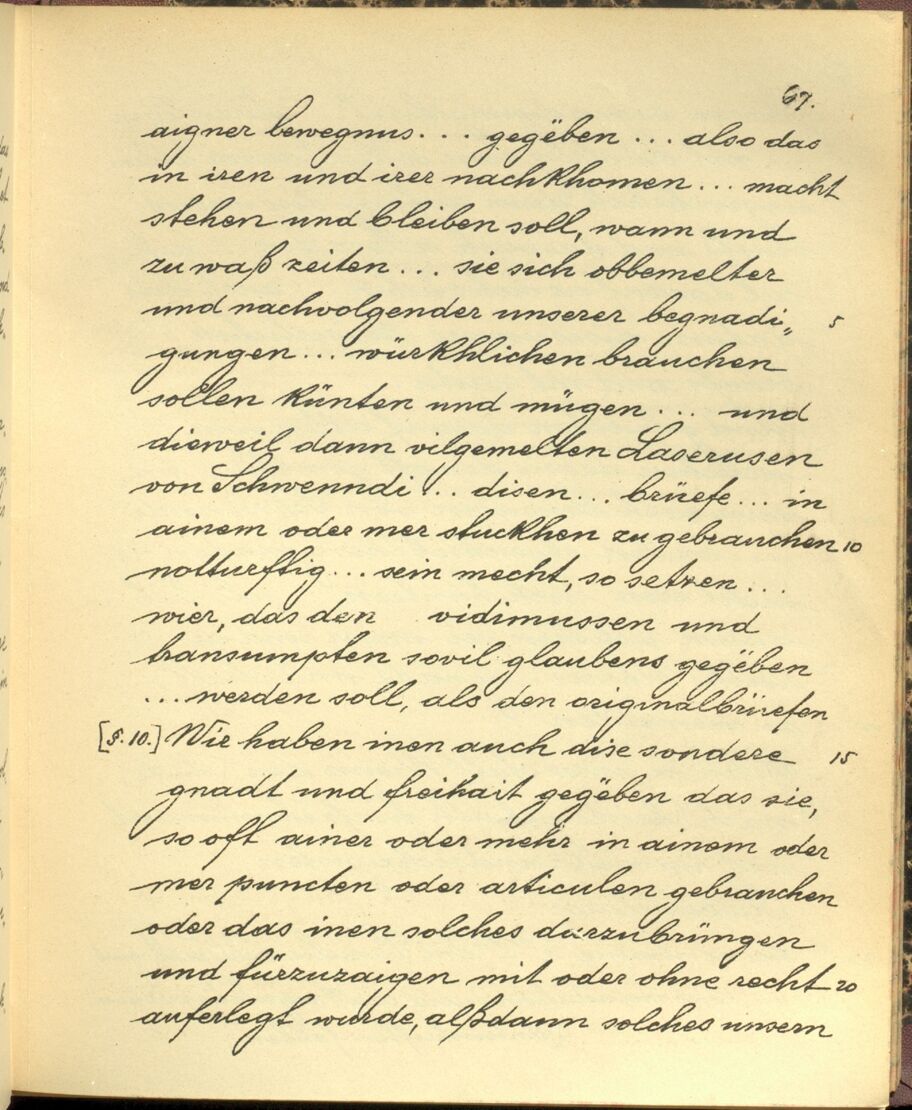 67.
aigner bewegnus... gegëben... also das
in iren und irer nachkhomen... macht
stehen und bleiben soll, wann und
zu waß zeiten... sie sich obbemelter
und nachvolgender unserer begnadi„ 5
gungen... würkhlichen brauchen
sollen künten und mügen... und
dieweil dann vilgemelten Laserusen
von Schwenndi... disen... brüefe... in
ainem oder mer stuckhen zu gebrauchen 10
notturftig... sein mecht, so setzen...
wier, das den vidimussen und
transumpten sovil glaubens gegëben
...werden soll, als den originalbrüefen
[§. 10.] Wir haben inen auch dise sondere 15
gnadt und freihait gegëben das sie,
so oft ainer oder mehr in ainem oder
mer puncten oder articulen gebrauchen
oder das inen solches darzubrüngen
und fürzuzaigen mit oder ohne recht 20
auferlegt wurde, alßdann solches unserm